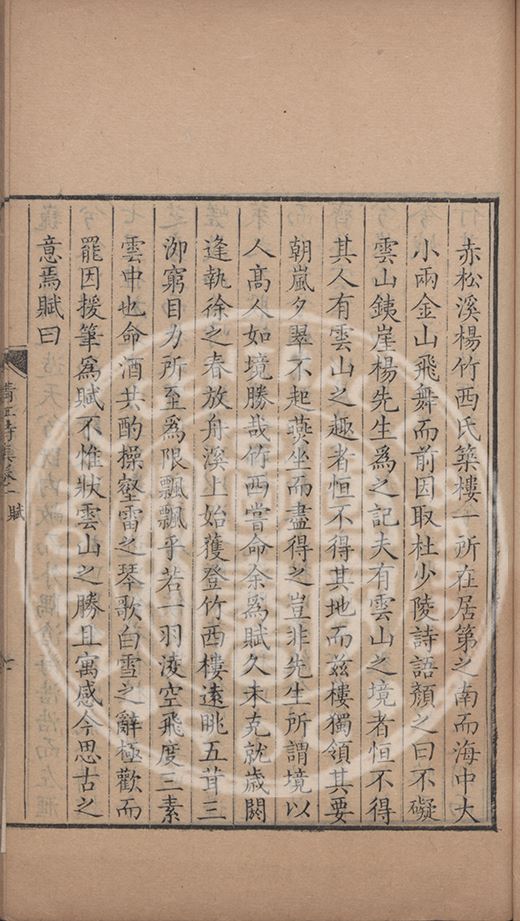 赤松溪楊竹西氏築樓一所在居第之南而海中大
小兩金山飛舞而前因取杜少陵詩語顏之曰不礙
雲山銕崖楊先生為之記夫有雲山之境者恒不得
其人有雲山之趣者恒不得其地而茲樓獨領其要
朝嵐夕翠不起燕坐而盡得之豈非先生所謂境以
人高人如境勝哉竹西嘗命余為賦久未克就歲閼
逢執徐之春放舟溪上始獲登竹西樓遠眺五茸三
泖窮目力所至為限飄飄乎若一羽淩空飛度三素
雲中也命酒共酌操壑雷之琴歌白雪之辭極歡而
罷因援筆為賦不惟狀雲山之勝且寓感今思古之
意焉賦曰
賦